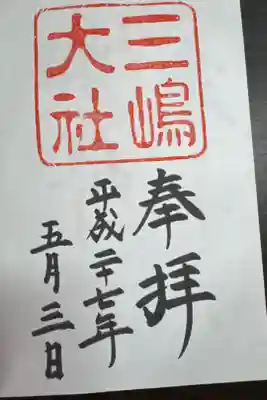 三嶋
大社
奉拝
平成二十七年
五月三日